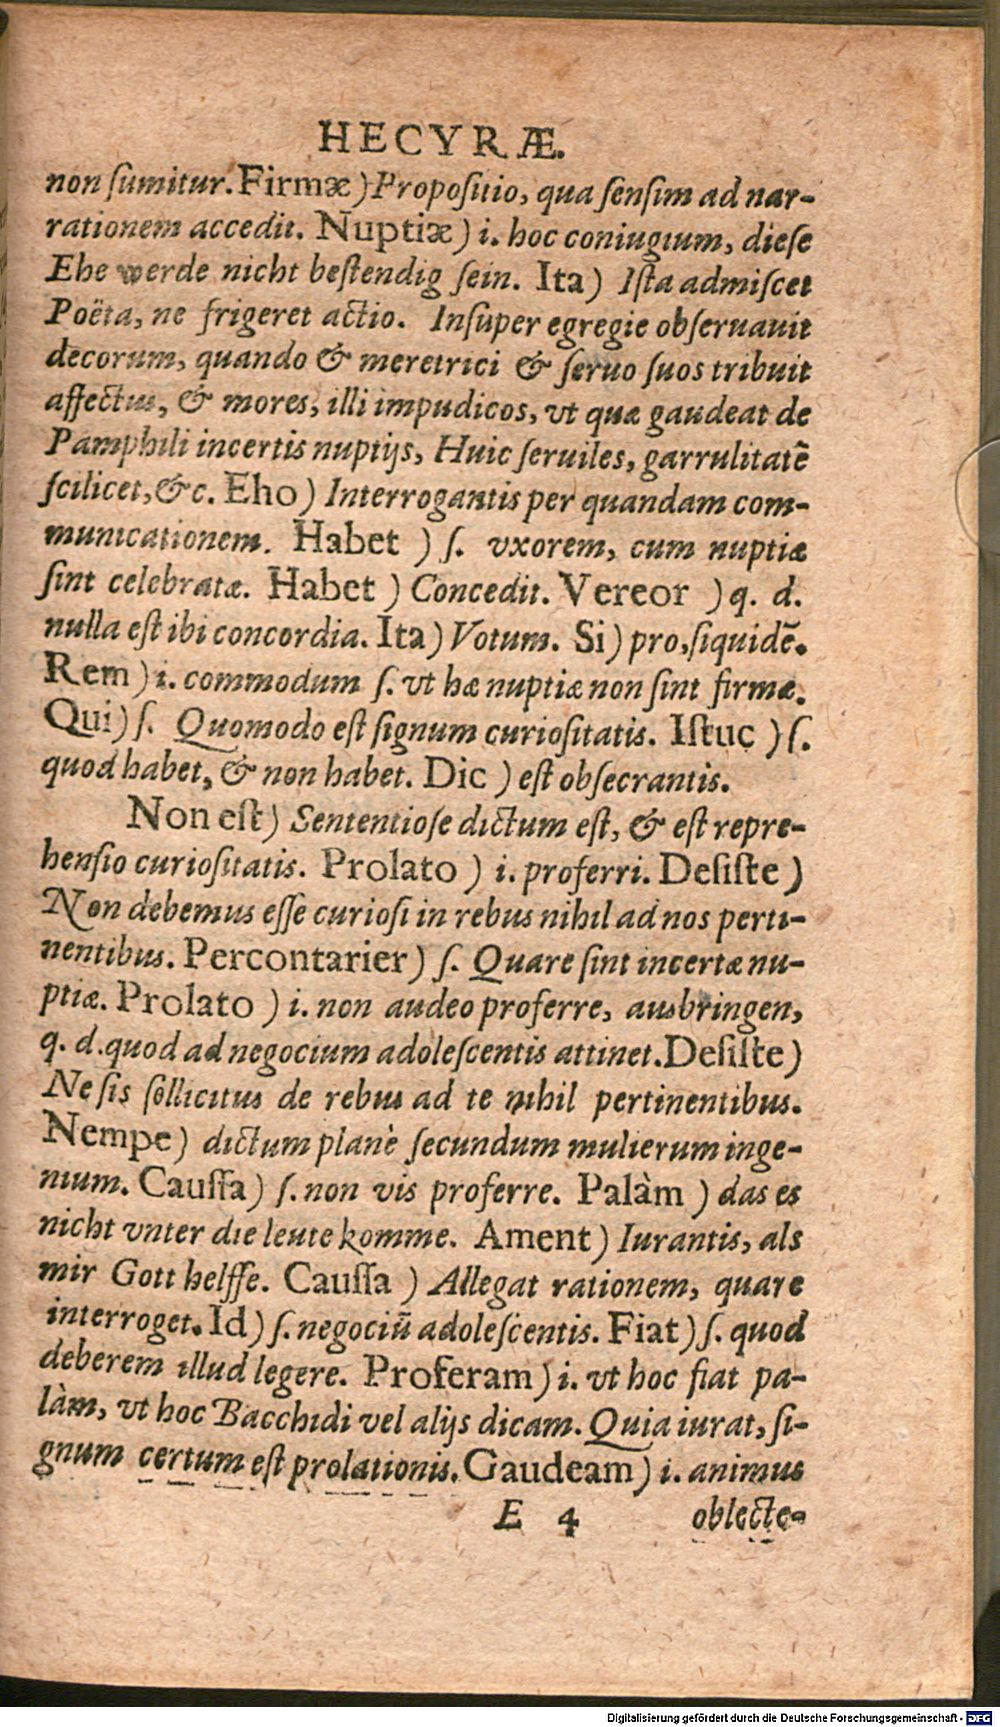 HECYRÆ.
non ſumitur. Firmæ) Propoſitio, qua ſenſim ad nar-
rationem accedit. Nuptiæ) i. hoc coniugium, dieſe
Ehe werde nicht beſtendig ſein. Ita) Iſta admiſcet
Poëta, ne frigeret actio. Inſuper egregie obſeruauit
decorum, quando & meretrici & ſeruo ſuos tribuit
affectus, & mores, illi impudicos, vt quæ gaudeat de
Pamphili incertis nuptijs, Huic ſeruiles, garrulitatē
ſcilicet, &c. Eho) Interrogantis per quandam com-
municationem. Habet ) ſ. vxorem, cum nuptiæ
ſint celebratæ. Habet ) Concedit. Vereor ) q. d.
nulla eſt ibi concordia. Ita) Votum. Si) pro, ſiquidē.
Rem) i. commodum ſ. vt hæ nuptiæ non ſint firmæ.
Qui) ſ. Quomodo eſt ſignum curioſitatis. Iſtuc ) ſ.
quod habet, & non habet. Dic ) eſt obſecrantis.
Non eſt) Sententioſe dictum eſt, & eſt repre-
henſio curioſitatis. Prolato ) i. proferri. Deſiſte)
Non debemus eſſe curioſi in rebus nihil ad nos perti-
nentibus. Percontarier) ſ. Quare ſint incertæ nu-
ptiæ. Prolato ) i. non audeo proferre, ausbringen,
q. d. quod ad negocium adoleſcentis attinet. Deſiſte)
Ne ſis ſollicitus de rebus ad te nihil pertinentibus.
Nempe) dictum planè ſecundum mulierum inge-
nium. Cauſſa) ſ. non vis proferre. Palàm ) das es
nicht vnter die leute komme. Ament) Iurantis, als
mir Gott helffe. Cauſſa ) Allegat rationem, quare
interroget. Id) ſ. negociū adoleſcentis. Fiat) ſ. quod
deberem illud legere. Proferam) i. vt hoc fiat pa-
làm, vt hoc Bacchidi vel alijs dicam. Quia iurat, ſi-
gnum certum eſt prolationis. Gaudeam) i. animus
E 4 oblecte-
Digitalisierung gefördert durch die Deutsche Forschungsgemeinschaft - DFG